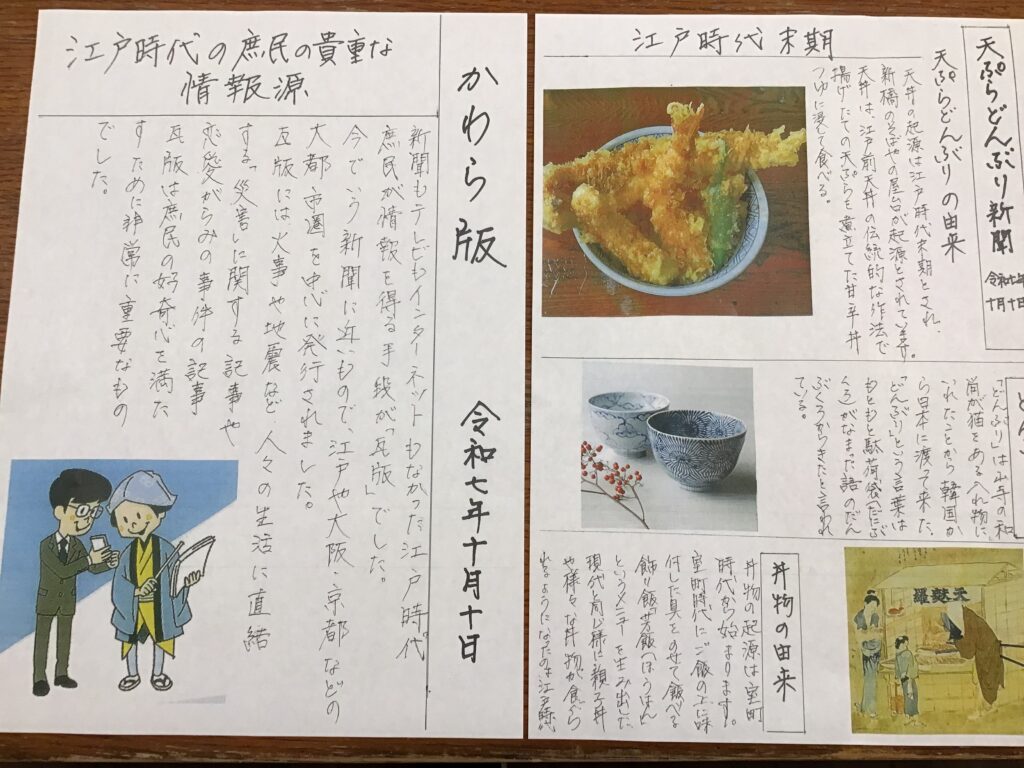 かわら版
令和七年十月十日
江戸時代の庶民の貴重な
情報源
新聞もテレビもインターネットもなかった江戸時代
庶民が情報を得る手段が「瓦版」でした。
今でいう新聞に近いもので、江戸や大阪・京都などの
大都市圏を中心に発行されました。
瓦版には火事や地震など、人々の生活に直結
する「災害」に関する記事や
恋愛がらみの事件の記事
瓦版は庶民の好奇心を満た
すために非常に重要なもの
でした。
天ぷらどんぶり新聞
令和七年
十月十日
天ぷらどんぶりの由来
江戸時代末期
天丼の起源は江戸時代末期とされ、
新橋のそばやの屋台が起源とされています。
天丼は、江戸前天丼の伝統的な作法で
揚げたての天ぷらを煮立てた甘辛丼
つゆに浸して食べる。
「どんぶり」は山寺の和
尚が猫をある入れ物に、
いれたことから韓国か
ら日本に渡って来た、
「どんぶり」という言葉は
もともと駄荷袋のだにぶ
くろ)がなまった語のだん
ぶくろからきたと言われ
ている。
丼物の由来
丼物の起源は室町
時代から始まります。
室町時代にご飯の上に味
付した具をのせて飯べる
飾り飯「芳飯(ほうはん
というメニューを生み出した
現代と同じ様に親子丼
や様々な丼物が食べら
れるようになったのは江戸時
天麩羅